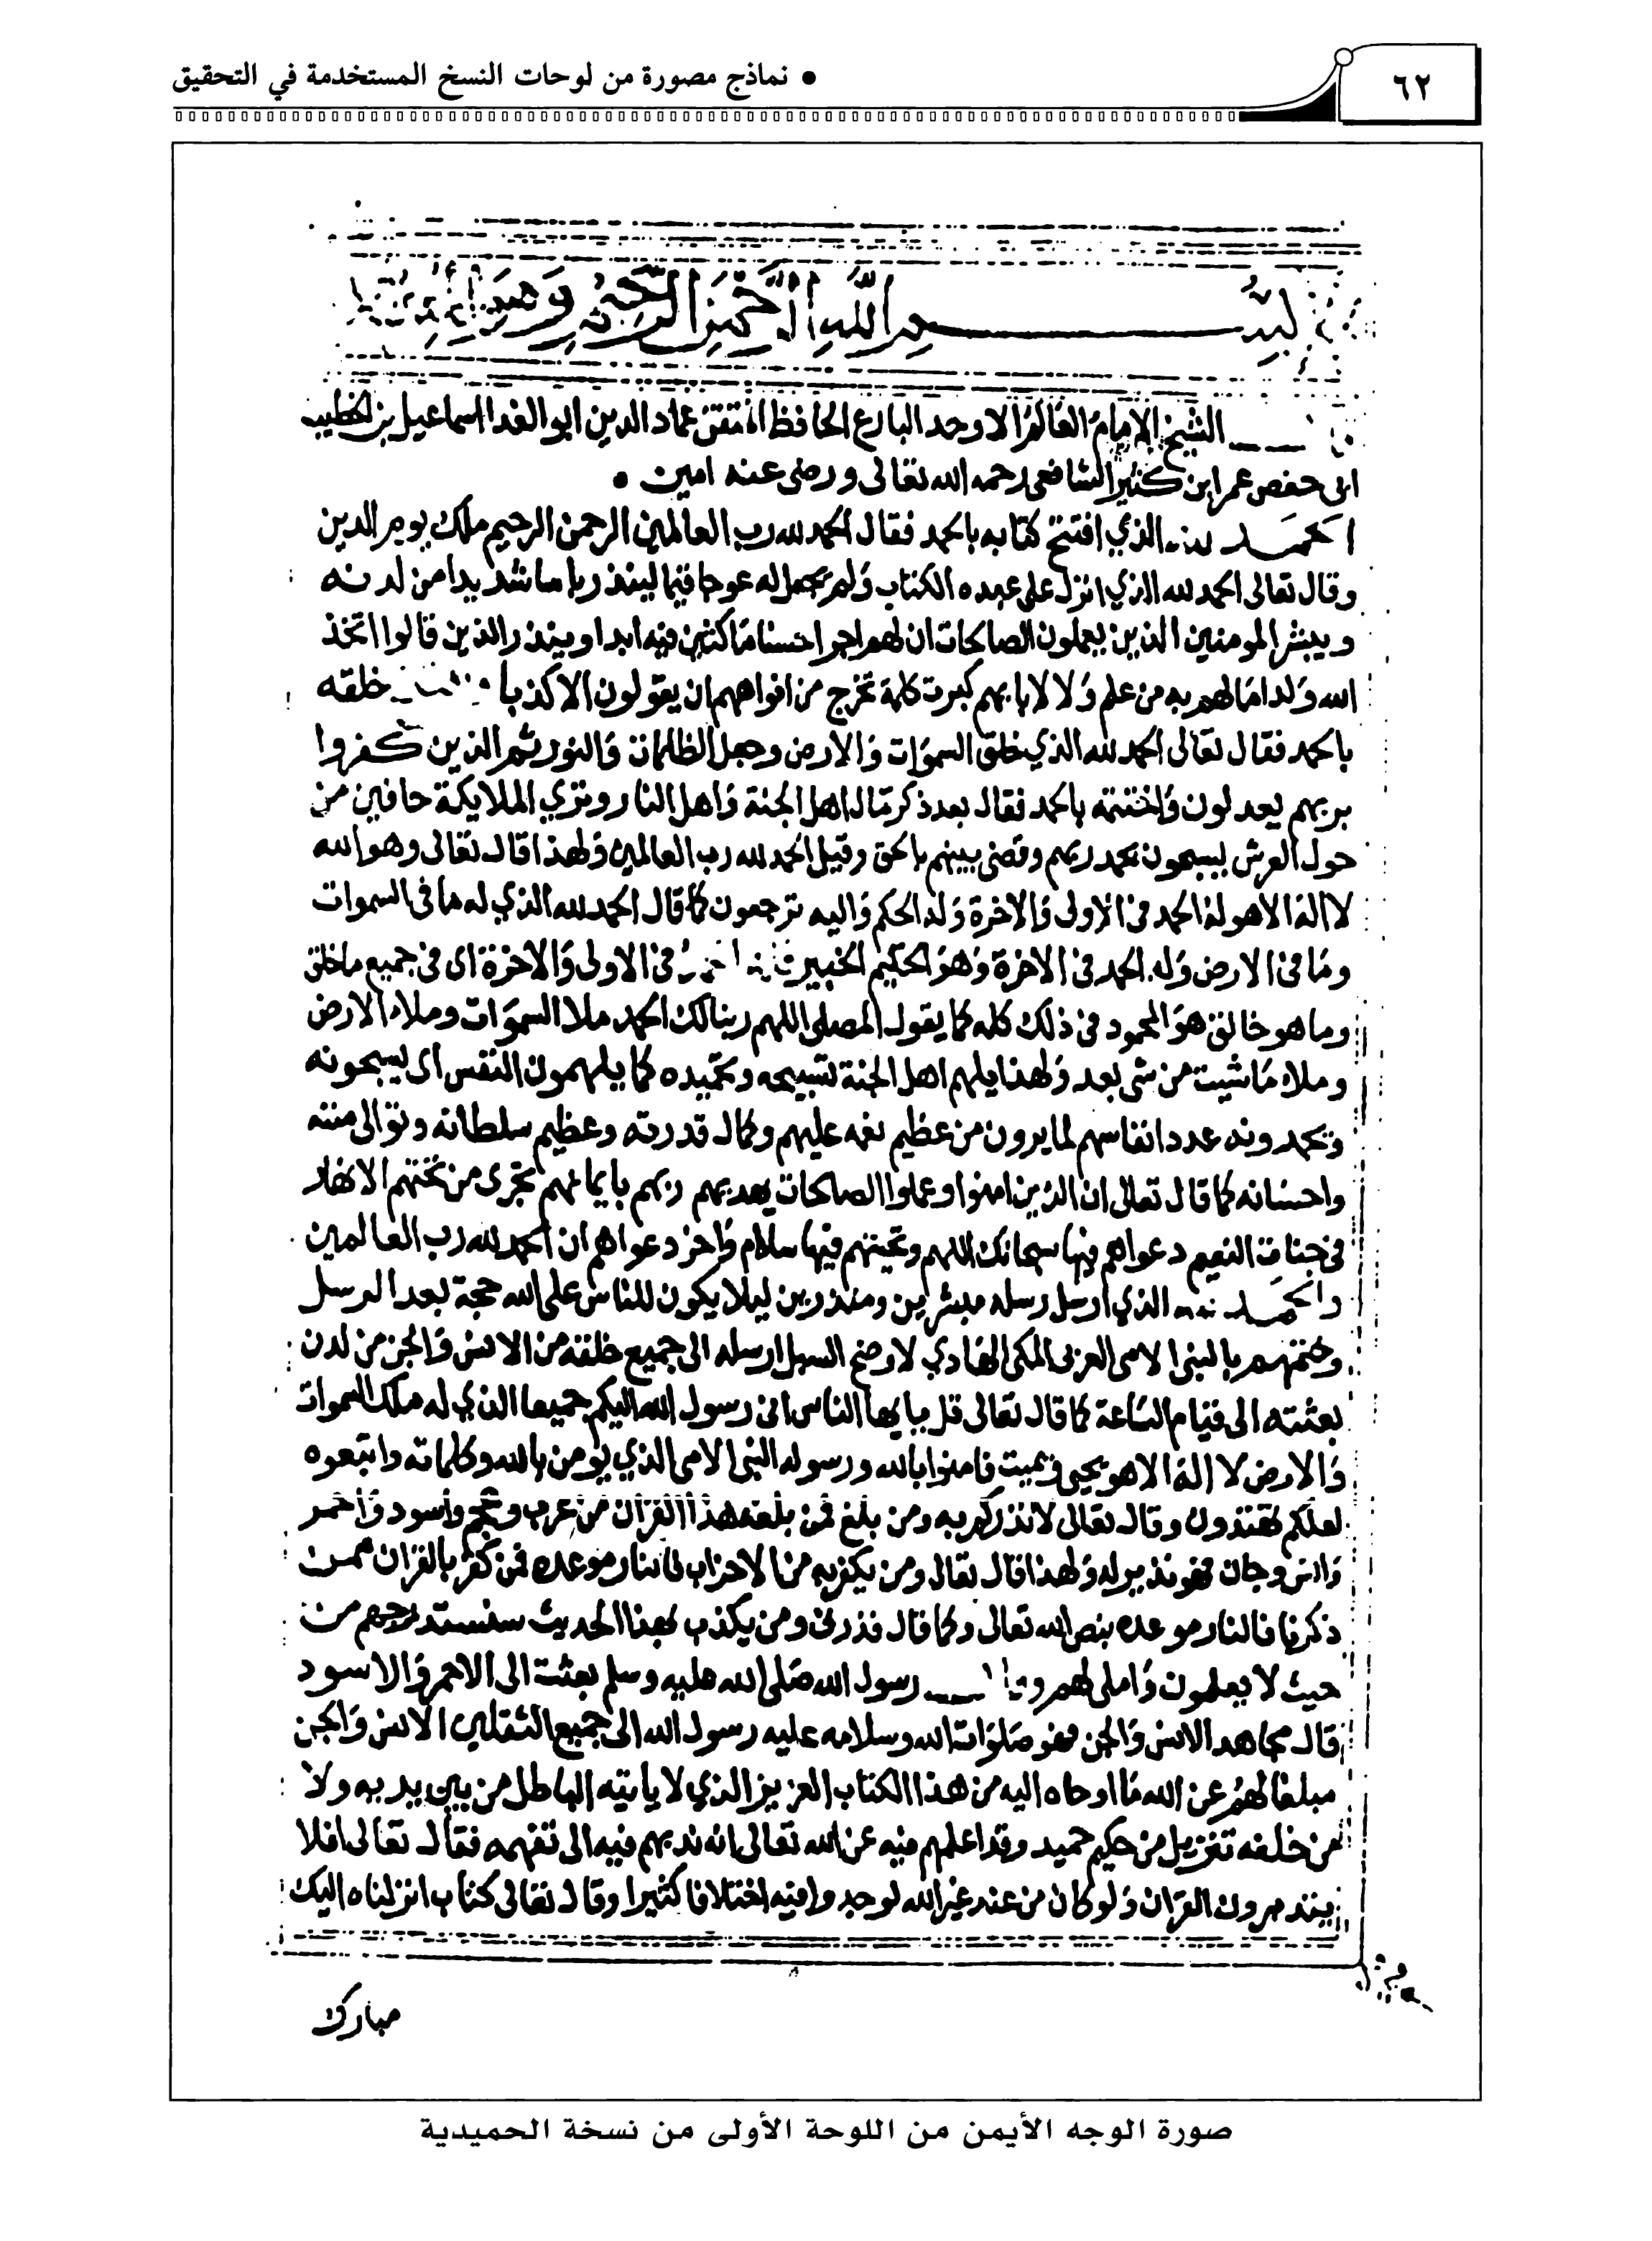 ٦٢
• نماذج مصورة من لوحات النسخ المستخدمة في التحقيق
بسم الله الرحمن الرحيم
الشيخ الامام العالم الاوحد البارع الحافظ المتقن عماد الدين ابو الفدا اسماعيل بن الخطيب
ابى حفص عمر ابن كثير الشافعي رحمه الله تعالى ورضى عنه امين •
الحمد لله الذي افتتح كتابه بالحمد فقال الحمد لله رب العالمين الرحمن الرحيم ملك يوم الدين
وقال تعالى الحمد لله الذي انزل على عبده الكتاب ولم يجعل له عوجا قيما لينذر باسا شديدا من لدنه
ويبشر المومنين الذين يعملون الصالحات ان لهم اجرا حسنا ماكثين فيه ابدا وينذر الذين قالوا اتخذ
الله ولدا ما لهم به من علم ولا لابايهم كبرت كلمة تخرج من افواههم ان يقولون الا كذبا خلقه
بالحمد فقال تعالى الحمد لله الذي خلق السموات والارض وجعل الظلمات والنور ثم الذين كفروا
بربهم يعدلون واختتمه بالحمد فقال بعد ذكر مال اهل الجنة واهل النار وتري الملايكة حافين من
حول العرش يسبحون بحمد ربهم وقضى بينهم بالحق وقيل الحمد لله رب العالمين ولهذا قال تعالى وهو الله
لا اله الا هو له الحمد في الاولى والاخرة وله الحكم واليه ترجعون كما قال الحمد لله الذي له ما في السموات
وما في الارض وله الحمد في الاخرة وهو الحكيم الخبير في الاولى والاخرة اى في جميع ما خلق
وما هو خالق هو المحمود في ذلك كله كما يقول المصلى اللهم ربنا لك الحمد ملا السموات وملاء الارض
وملاء ما شيت من شى بعد ولهذا يلهم اهل الجنة تسبيحه وتحميده كما يلهمون النفس اى يسبحونه
ويحمدونه عدد انفاسهم لما يرون من عظيم نعمه عليهم وكمال قدرته وعظيم سلطانه وتوالى مننه
واحسانه كما قال تعالى ان الذين امنوا وعملوا الصالحات يهديهم ربهم بايمانهم تجرى من تحتهم الانهار
في جنات النعيم دعواهم فيها سبحانك اللهم وتحيتهم فيها سلام واخر دعواهم ان الحمد لله رب العالمين
والحمد لله الذي ارسل رسله مبشرين ومنذرين ليلا يكون للناس على الله حجة بعد الرسل
وختمهم بالنبى الامى العربى المكى الهادي لاوضح السبل ارسله الى جميع خلقه من الانس والجن من لدن
بعثته الى قيام الساعة كما قال تعالى قل يايها الناس انى رسول الله اليكم جميعا الذي له ملك السموات
والارض لا اله الا هو يحيى ويميت فامنوا بالله ورسوله النبى الامى الذي يومن بالله وكلماته واتبعوه
لعلكم تهتدون وقال تعالى لانذركم به ومن بلغ فمن بلغه هذا القران من عرب وعجم واسود واحمر
وانس وجان فهو نذير له ولهذا قال تعالى ومن يكفر به من الاحزاب فالنار موعده فمن كفر بالقران ممن
ذكرنا فالنار موعده بنص الله تعالى وكما قال فذرنى ومن يكذب بهذا الحديث سنستدرجهم من
حيث لا يعلمون واملى لهم وقال رسول الله صلى الله عليه وسلم بعثت الى الاحمر والاسود
قال مجاهد الانس والجن فهو صلوات الله وسلامه عليه رسول الله الى جميع الثقلين الانس والجن
مبلغا لهم عن الله ما اوحاه اليه من هذا الكتاب العزيز الذي لا ياتيه الباطل من بين يديه ولا
من خلفه تنزيل من حكيم حميد وقد اعلمهم فيه عن الله تعالى انه ندبهم فيه الى تفهمه فقال تعالى افلا
يتدبرون القران ولو كان من عند غير الله لوجدوا فيه اختلافا كثيرا وقال تعالى كتاب انزلناه اليك
مبارك
صورة الوجه الأيمن من اللوحة الأولى من نسخة الحميدية